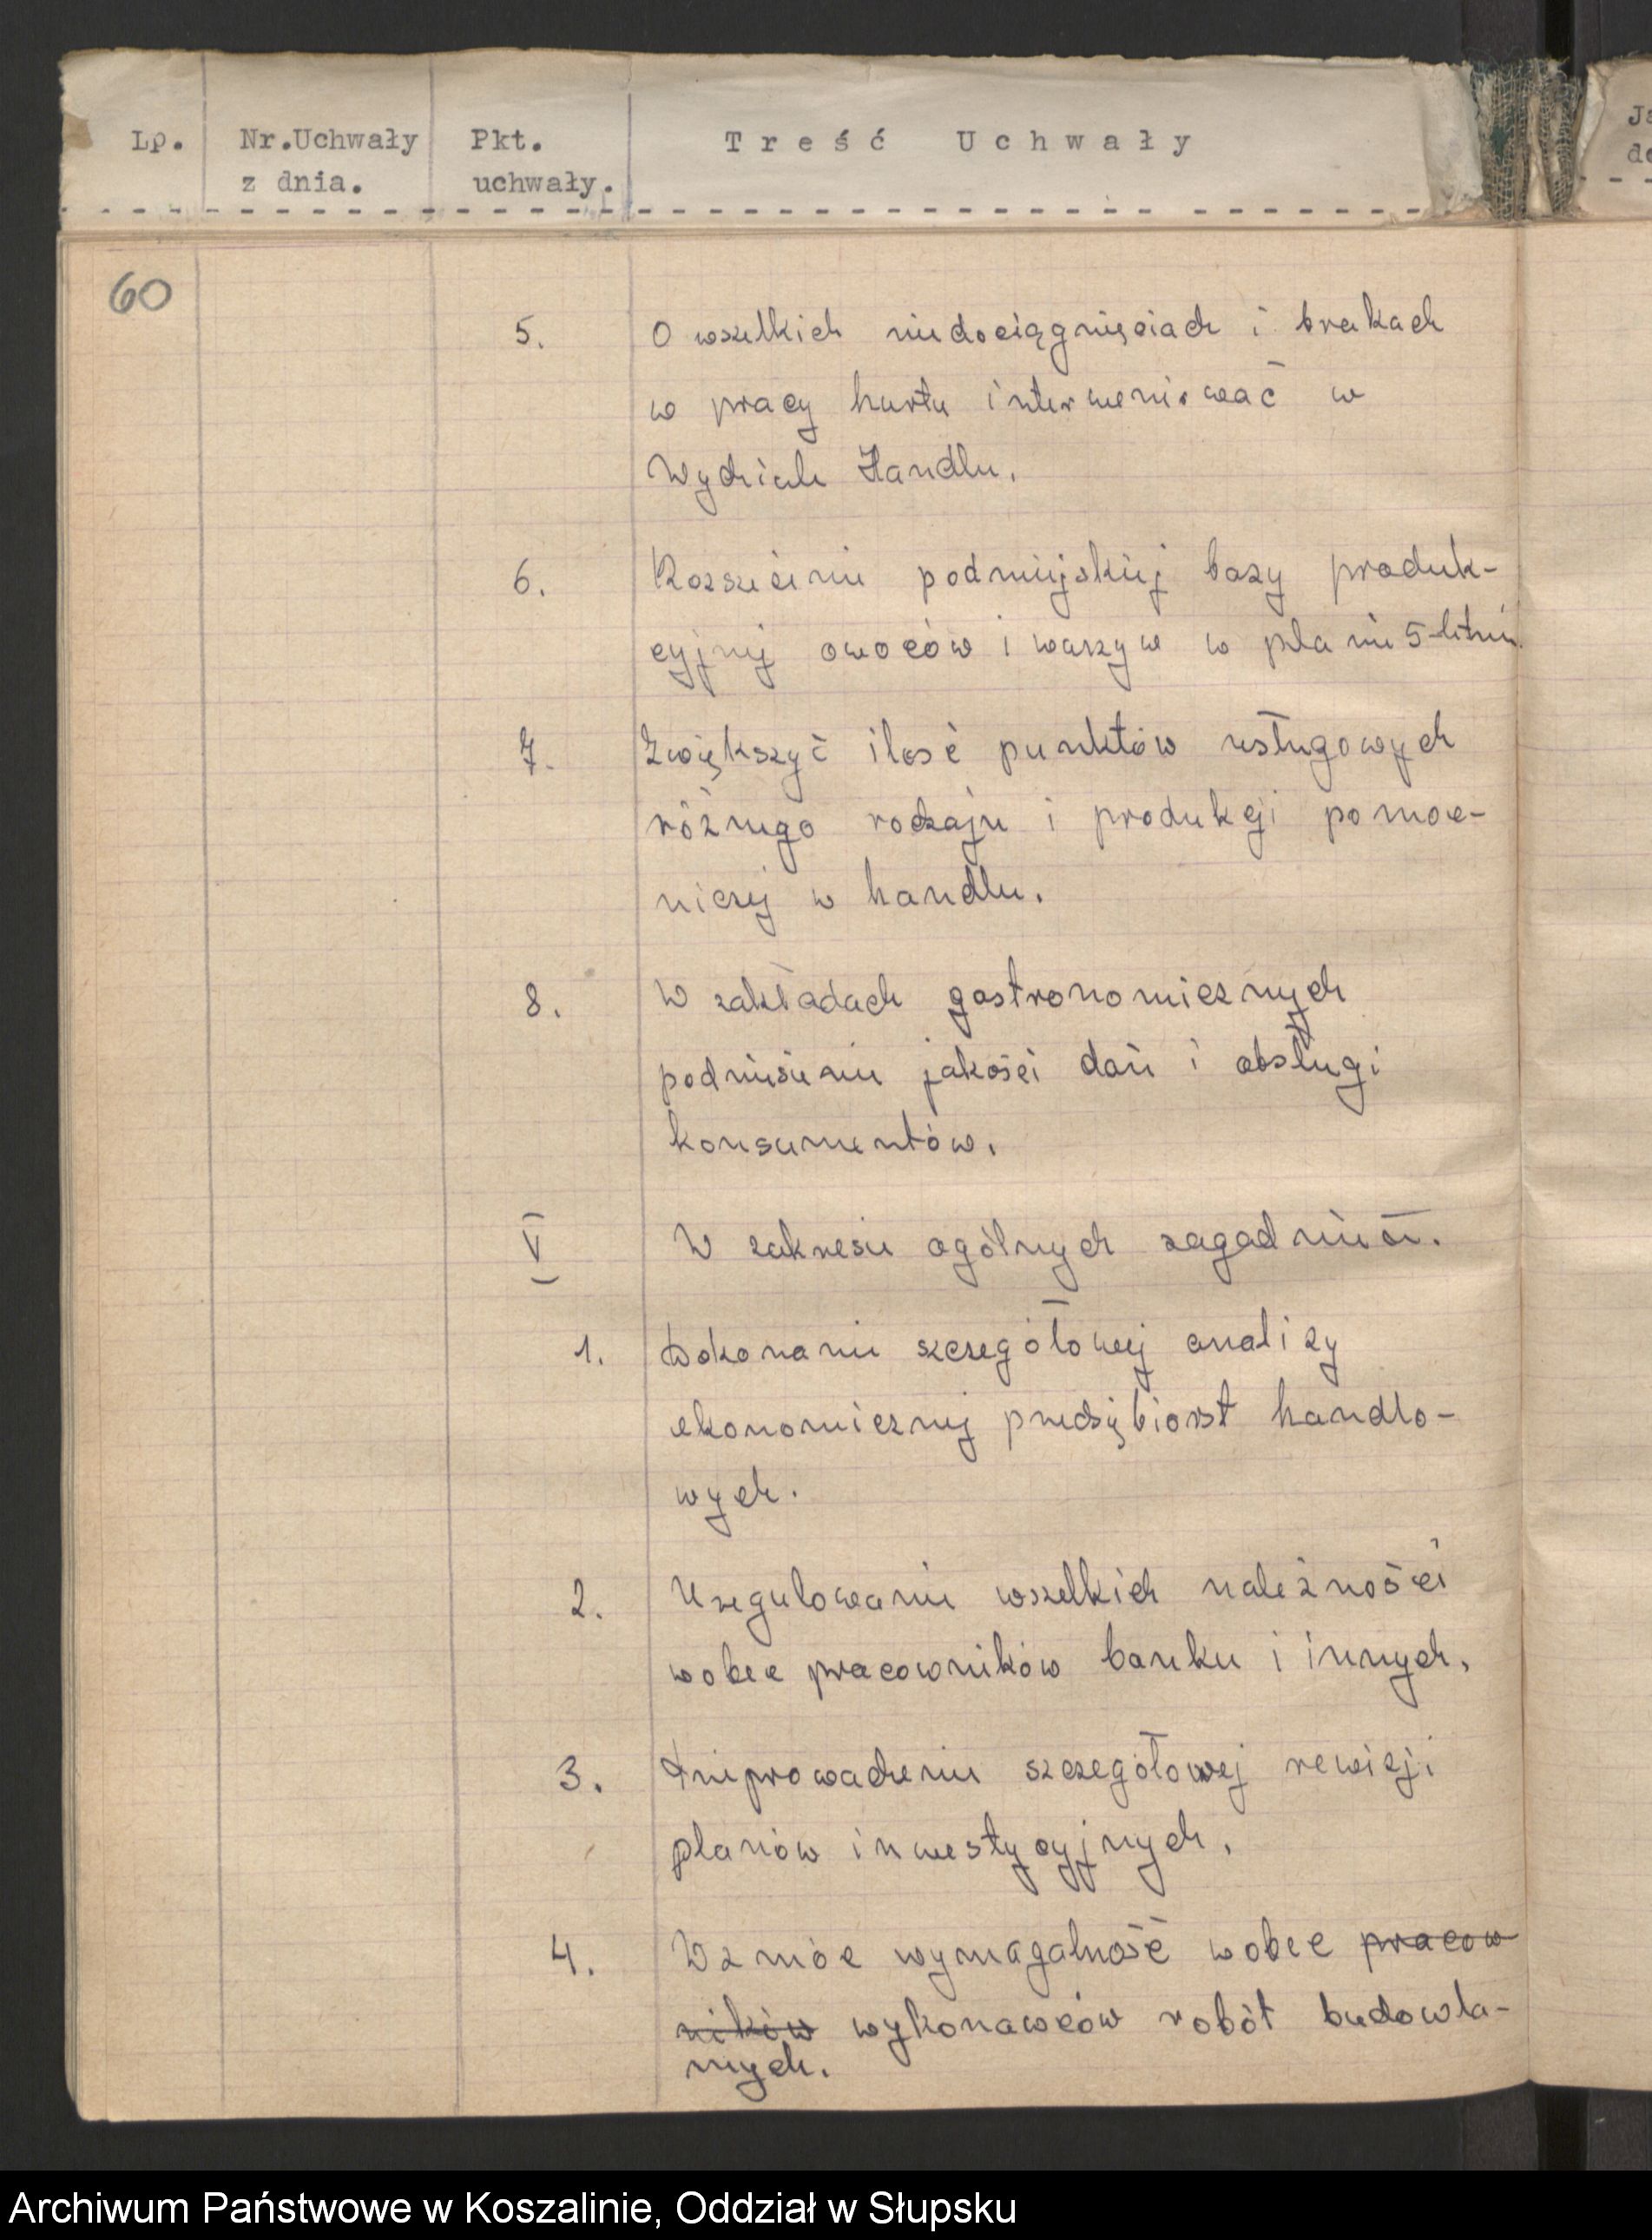 Lp. Nr.Uchwały Pkt. Treść Uchwały
z dnia. uchwały.
60
5. O wszelkich niedociągnięciach i brakach
w pracy hurtu interweniować w
Wydziale Handlu.
6. Rozszeżenie podmiejskiej bazy produk-
cyjnej owoców i warzyw w planie 5-letnim
7. Zwiększyć ilość punktów usługowych
różnego rodzaju i produkcji pomoc-
niczej w handlu.
8. W zakładach gastronomicznych
podniesienie jakości dań i obsługi
konsumentów.
V W zakresie ogólnych zagadnień.
1. Dokonanie szczegółowej analizy
ekonomicznej przedsiębiorst handlo-
wych.
2. Uregulowanie wszelkich należności
wobec pracowników banku i innych.
3. Przeprowadzenie szczegółowej rewizji
planów inwestycyjnych.
4. Wzmóc wymagalność wobec pracow
ników wykonawców robót budowla-
nych.
Ja
de
Archiwum Państwowe w Koszalinie, Oddział w Słupsku